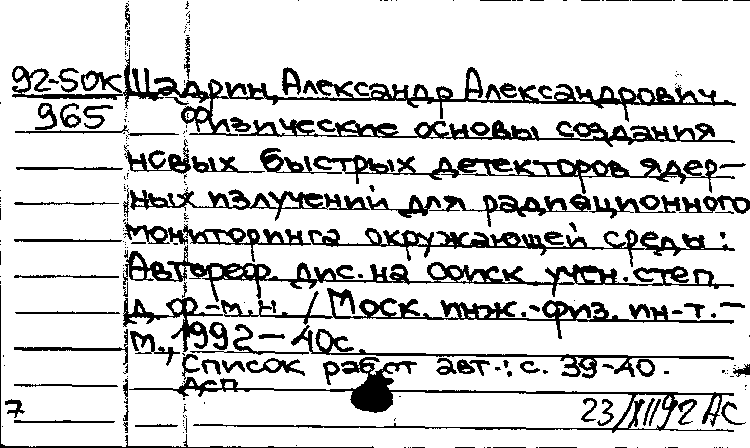 92-50к Щадрин, Александр Александрович.
965 Физические основы создания
новых быстрых детекторов ядер-
ных излучений для радиационного
мониторинга окружающей среды :
Автореф. дис. на соиск. учен. степ.
д. ф.-м. н. / Моск. инж.-физ. ин-т. -
м., 1992 - 40с.
Список работ авт.: с. 39-40.
дсп.
7 23/XII92 АС